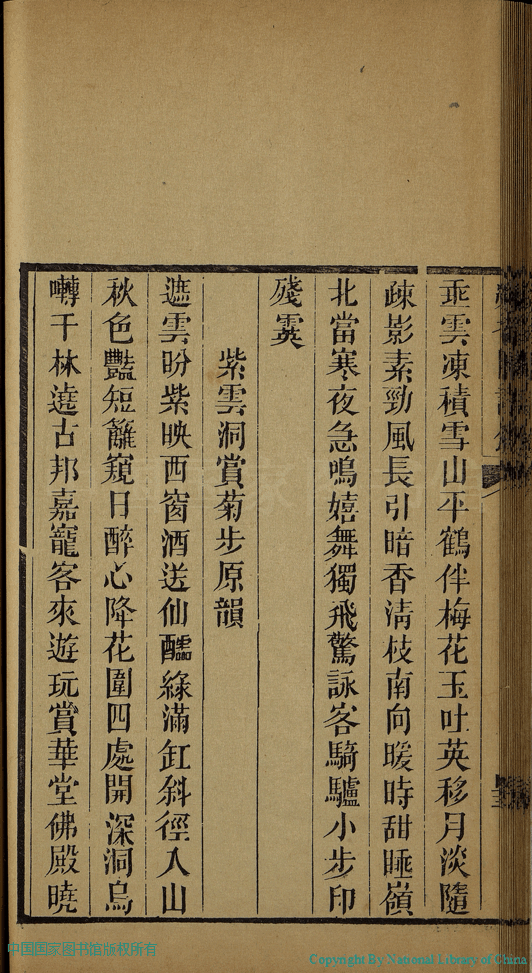 乖雲凍積雪山平鶴伴梅花玉吐英移月淡隨
疎影素勁風長引暗香淸枝南向暖時甜睡嶺
北當寒夜急鳴嬉舞獨飛驚詠客騎驢小步印
殘霙
紫雲洞賞菊步原韻
遮雲昐紫映西窗酒送仙醽綠滿缸斜徑入山
秋色豔短籬窺日醉心降花圍四處開深洞鳥
囀千林遶古邦嘉寵客來遊玩賞華堂佛殿曉
中国国家图书馆版权所有
Copyright By National Library of China